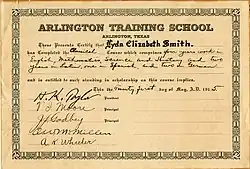 ARLINGTON TRAINING SCHOOL
ARLINGTON, TEXAS
These Presents Certify that Lyda Elizabeth Smith.
has Completed the Classical Course which comprises four years work in
English, Mathematics, Science and History and two
years in Latin, one in Spanish and two in German
and is entitled to such standing in scholarship as this course implies.
This twenty first day of May, A.D. 1915
H. K. Taylor
T. J. Moore
J. J. Godbey
A K Wheeler